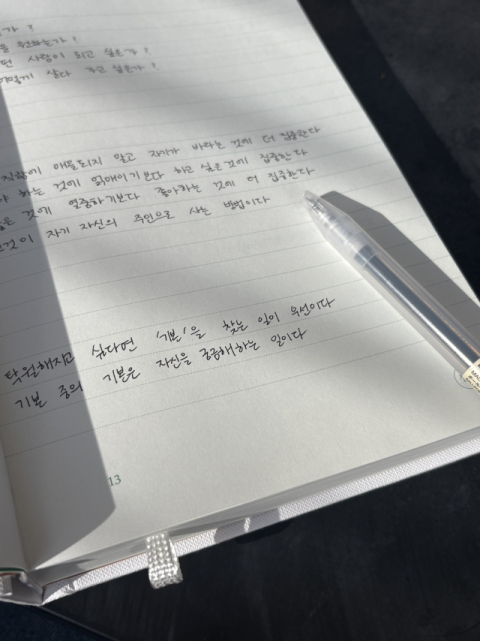 가?
원하는가?
사람이 되고 싶은가?
어떻게 살다 가고 싶은가?
매몰되지 않고 자기가 바라는 것에 더 집중한다
하는 것에 얽매이기보다 하고 싶은 것에 집중한다
것에 열중하기보다 좋아하는 것에 더 집중한다
자기 자신의 주인으로 사는 방법이다
탁월해지고 싶다면 '기본'을 찾는 일이 우선이다
기본 중의 기본은 자신을 궁금해하는 일이다
13